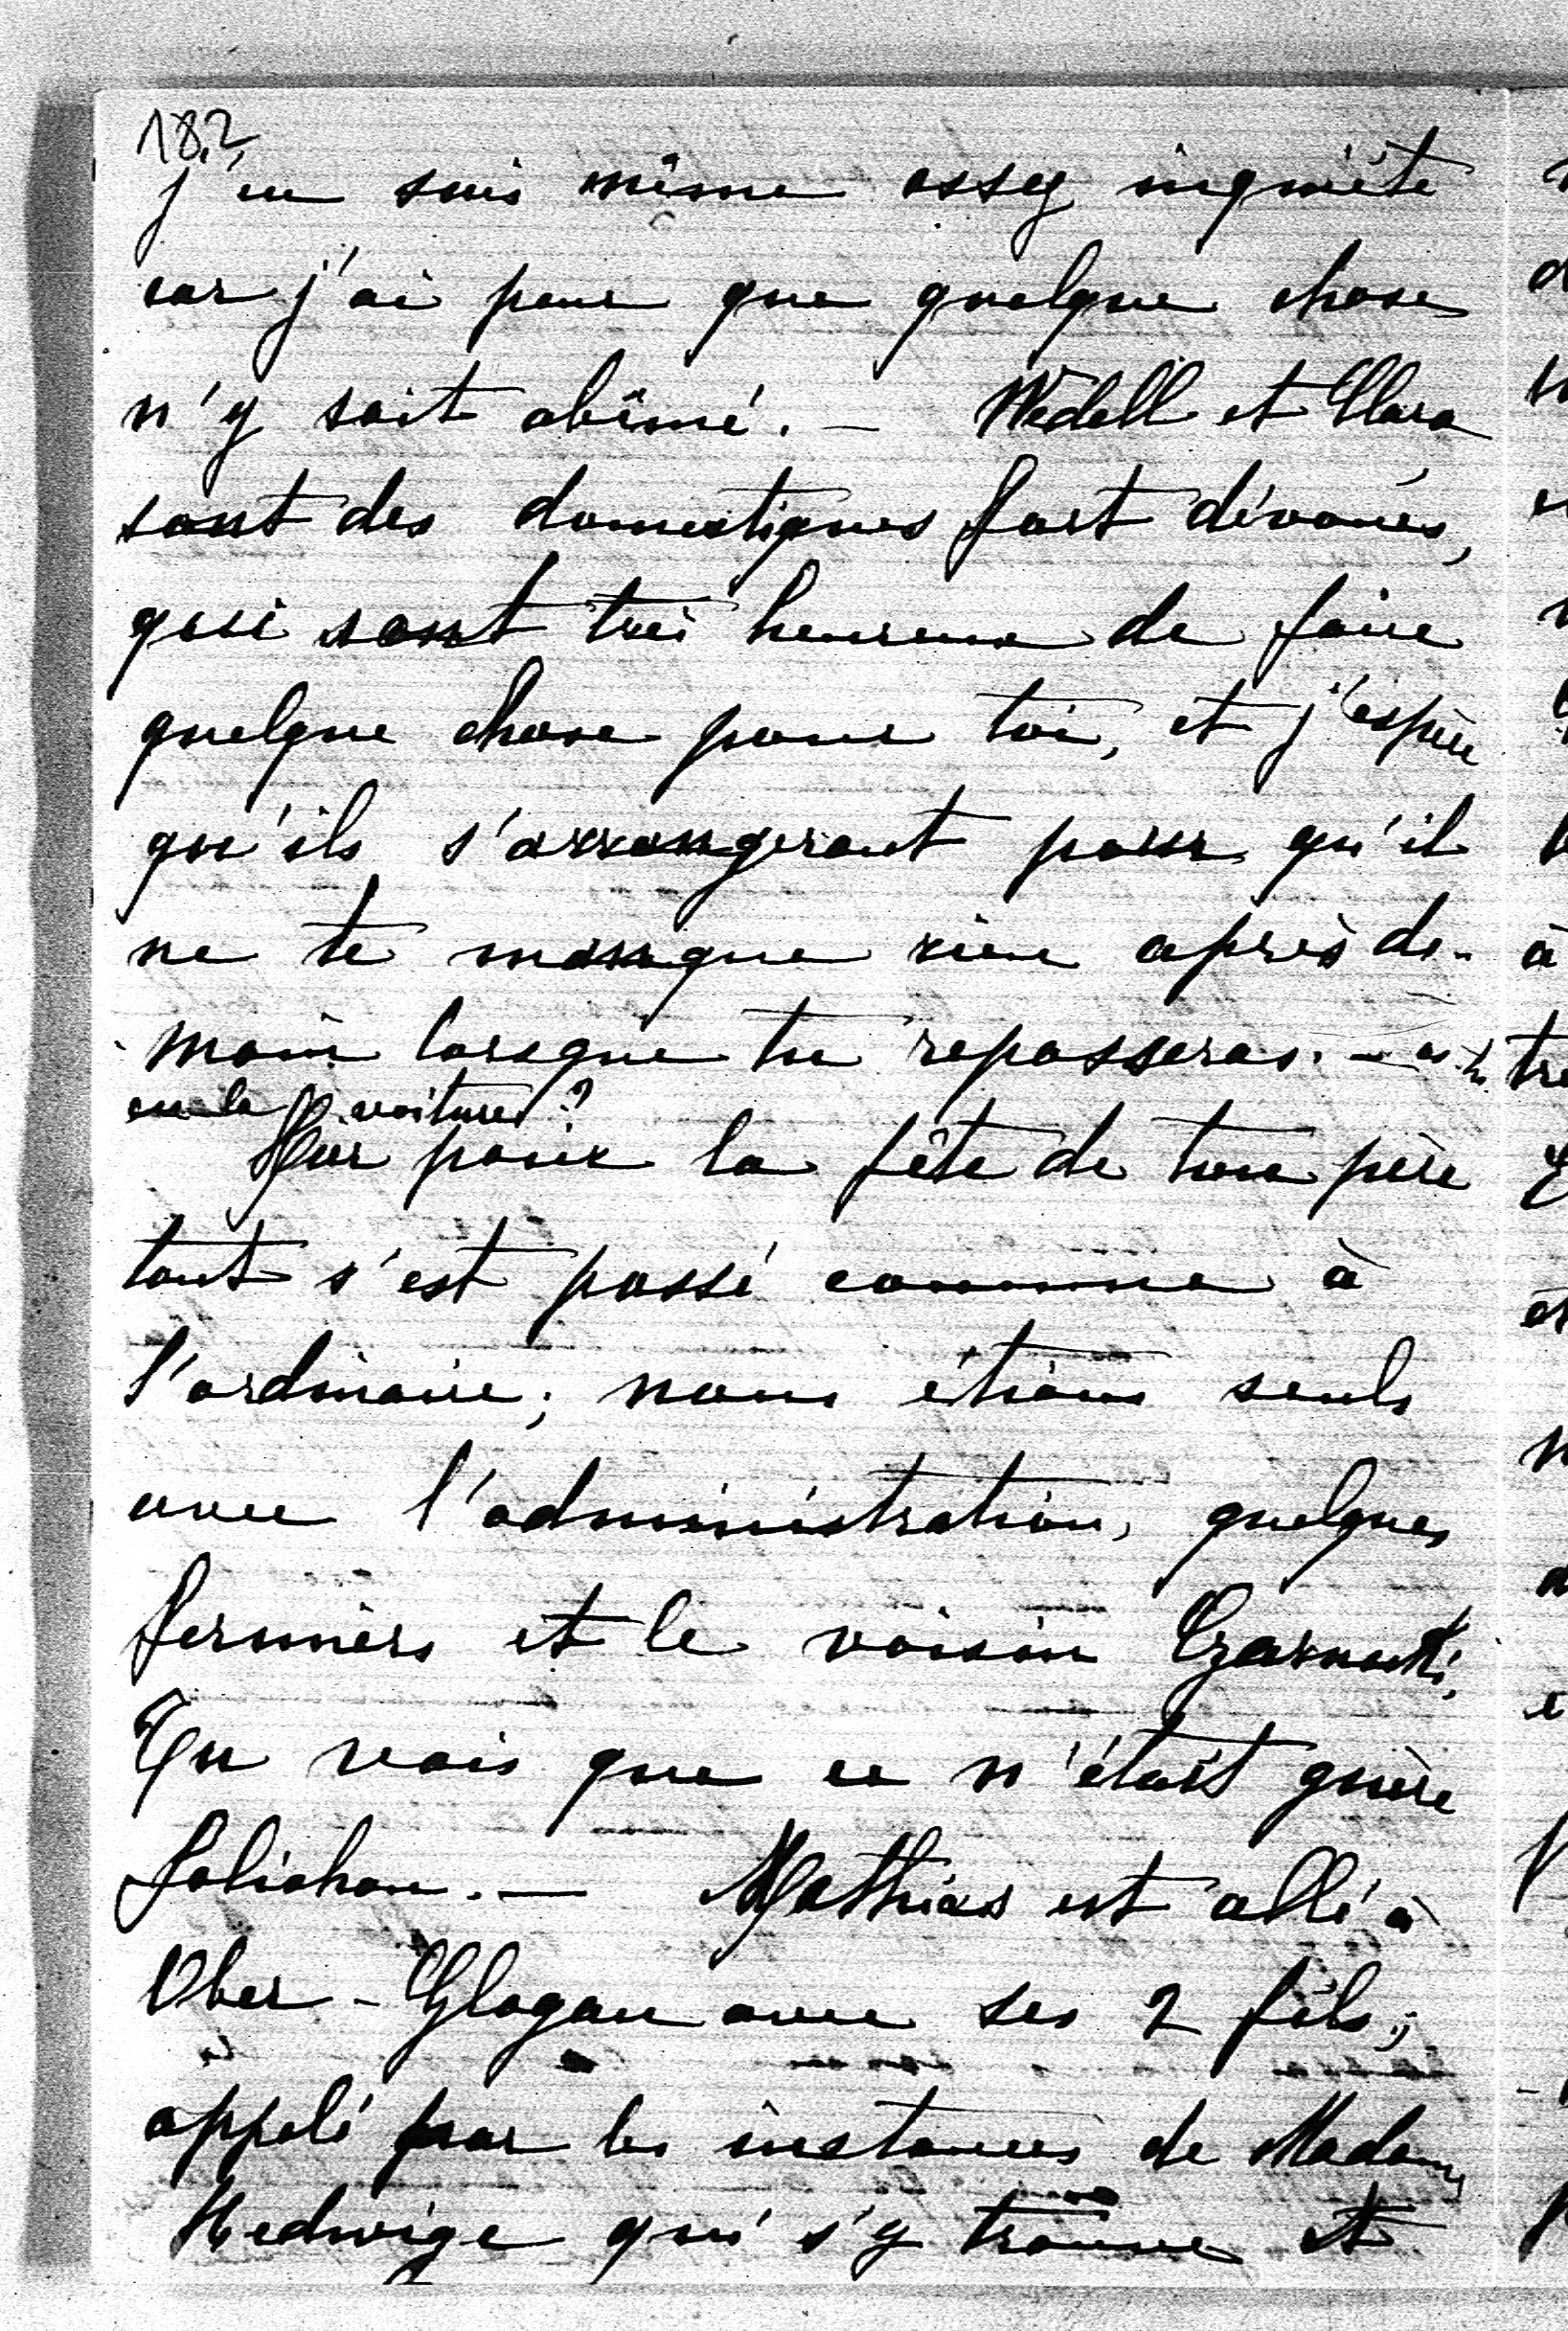 182
j'en suis même assez inquiète
car j'ai peur que quelque chose
n'y soit abîmé. — Wedell et Clara
sont des domestiques fort dévoués,
qui sont très heureux de faire
quelque chose pour toi, et j'espère
qu'ils s'arrangeront pour qu'il
ne te manque rien après de-
main lorsque tu repasseras. — as tu
eu la voiture?
Hier pour la fête de ton père
tout s'est passé comme à
l'ordinaire; nous étions seuls
avec l'administration, quelques
fermiers et le voisin Czarnecki,
Tu vois que ce n'était guère
folichon. — Mathias est allé à
Ober-Glogau avec ses 2 fils,
appelé par les instances de Madame
Hedwige qui s'y trouve et